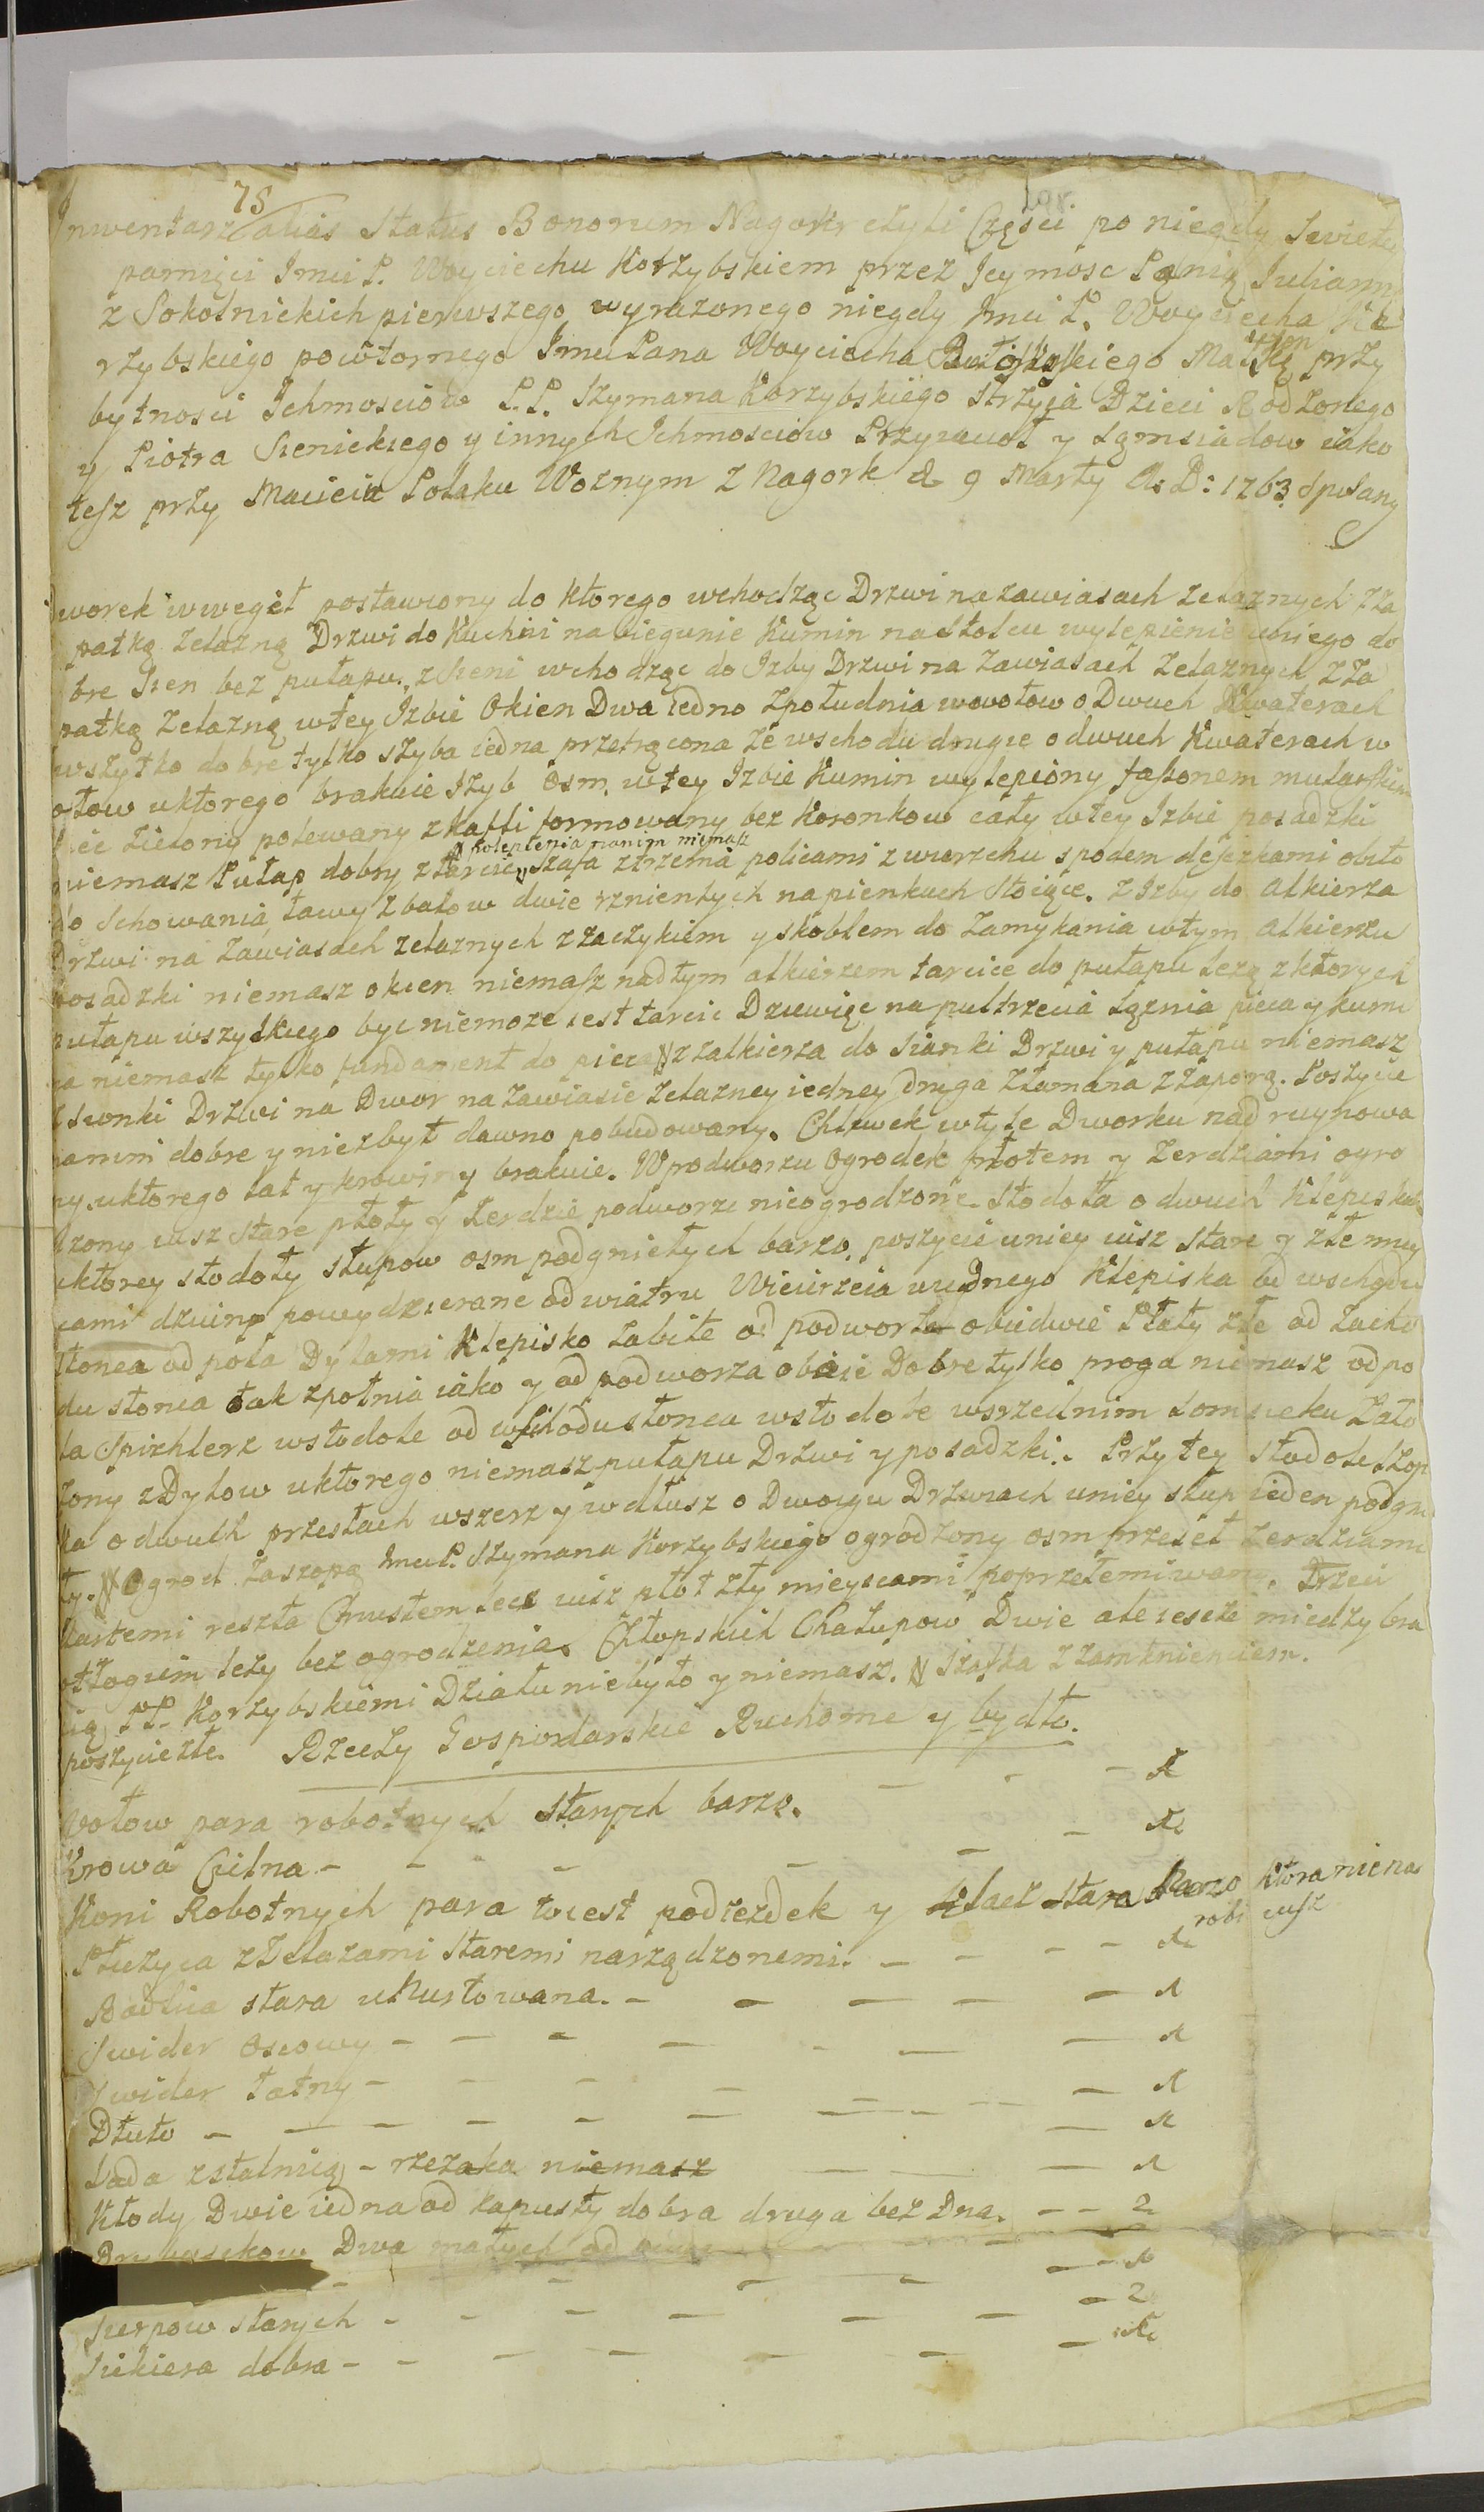 75
Inwentarz alias Status Bonorum Nagorki części po niegdy Swietey
pamięci Imci P. Woyciechu Korzybskiem przez Jeymosc Panią Juliannę
z Sokolnickich pierwszego wyrazonego niegdy Imci P. Woyciecha Ko
rzybskiego powtornego Imci Pana Woyciecha przy
bytnosci Ichmosciow P.P. Szymana Korzybskiego Stryia Dzieci Rodzonego
y Piotra Sienickiego y innych Ichmosciow Przyiaciol y Sąmsiadow iako
tesz przy Macieiu Polaku Woznym z Nagork d. 9 Marty A. D: 1763 Spisany
Dworek w węgeł postawiony do ktorego wchodząc Drzwi na zawiasach zelaznych z za
patką zelazną Drzwi do Kuchni na biegunie Kumin na stolcu wylepienie uniego do
bre Sien bez pułapu. z Sieni wchodząc do Izby Drzwi na zawiasach zelaznych z za
patką zelazną wtey Izbie Okien Dwa iedno zpołudnia wowołow o Dwuch Kwaterach
wszytko dobre tylko szyba iedna przetrącona ze wschodu drugie o dwuch Kwaterach w
ołow uktorego brakuie szyb osm. wtey Izbie Kumin wylepiony fasonem mularskim
piec zielony polewany z kafli formowany bez Koronkow cały wtey Izbie posadzki
niemasz Pułap dobry z tarcic Szafa ztrzema policami z wierzchu spodem deszczkami obito
N polepienia nanim niemasz
do Schowania, ławy z balow dwie rznientych na pienkach stoiące. z Izby do Alkierza
Drzwi na zawiasach zelaznych z zaczykiem y skoblem do zamykania wtym Alkierzu
posadzki niemasz okien niemasz nadtym alkierzem tarcice do pułapu lezą z ktorych
pułapu wszytkiego byc niemoze iest tarcic Dziewięc na pułtrzecia sążnia pieca y kumi
na niemasz tylko fundament do pieca N z alkierza do sianki Drzwi y pułapu niemasz
z sionki Drzwi na Dwor na zawiasie zelazney iedney druga złamana z zaporą. Poszycie
nanim dobre y niezbyt dawno pobudowany. Chlewek wtyle Dworku nadruynowa
ny. uktorego łat y krowiny brakuie. W podworzu Ogrodek płotem y zerdziami ogro
dzony iusz stare płoty y zerdzie podworze nieogrodzone. Stodoła o dwuch Klepiskach
uktorey stodoły słupow osm podgniełych barzo, poszycie uniey iusz stare y złe miey
scami dziury powydzierane od wiatru Wieirzeia uiednego Klepiska od wschodu
słonca od pola Dylami Klepisko zabite od podworza obiedwie Płaty złe od zacho
du słonca tak zpolnia iako y od podworza obaie Dobre tylko proga niemasz odpo
la Spichlerz wstodole od wschodu słonca wstodole wsrzednim somsieku zało
zony z Dylow uktorego niemasz pułapu Drzwi y posadzki. Przy tey stodole szop
ka o dwuch przesłach wszerz y w dłusz o Dwoygu Drzwiach uniey słup ieden podgni
ły. N Ogrod zaszopą Imci P. Szymana Korzybskiego ogrodzony osm przęseł zerdziami
dartemi reszta Chrustem lecz iusz płot zły mieyscami poprzełemiwany. Trzeci
odłogiem lezy bez ogrodzenia. Chłopskich Chałupow Dwie ale ieszcze miedzy bra
cią PP. Korzybskiemi Działu niebyło y niemasz. N Szafka z zamknieniem.
poszycie złe. Rzeczy Gospodarskie Ruchome y bydło.
Wołow para robotnych starych barzo. - - - 1
Krowa Cielna - - - - - - 1
Koni Robotnych para to iest podiezdek y klacz stara barzo ktora niena
robi iusz
Płużyca z zelazami staremi narządzonemi. - - - - 1
Radlica stara ukustowana. - - - - - 1
Swider osiowy - - - - - - - 1
Swider łatny - - - - - - 1
Dłuto - - - - - - - - - 1
Lada zstalnicą - rzezaka niemasz - - 1
Kłody Dwie iedna od kapusty dobra druga bez Dna. - - 2
Dwa małych od
- - - - - - 1
Sierpow starych - - - - - - - 2
Siekiera dobra - - - - - - - 1